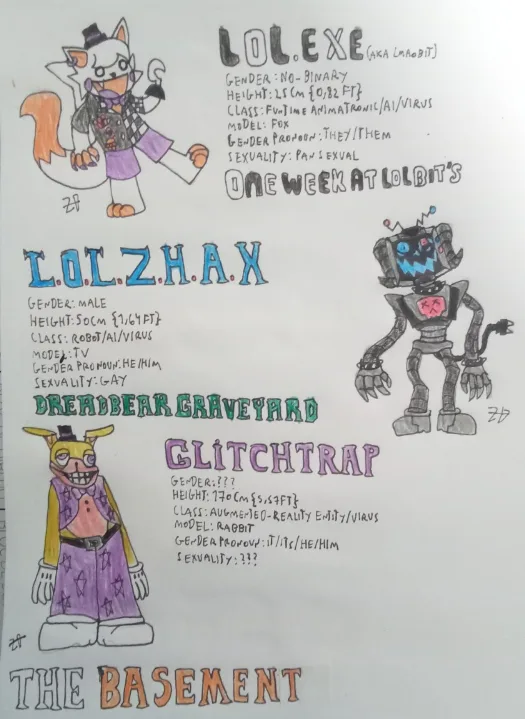 LOL.EXE (AKA LMAOBIT)
GENDER: NO-BINARY
HEIGHT: 25CM {0,82 FT}
CLASS: FUNTIME ANIMATRONIC/AI/VIRUS
MODEL: FOX
GENDER PRONOUN: THEY/THEM
SEXUALITY: PANSEXUAL
ONE WEEK AT LOLBIT'S
L.O.L.Z.H.A.X
GENDER: MALE
HEIGHT: 50CM {1,64 FT}
CLASS: ROBOT/AI/VIRUS
MODEL: TV
GENDER PRONOUN: HE/HIM
SEXUALITY: GAY
DREADBEAR GRAVEYARD
GLITCHTRAP
GENDER: ???
HEIGHT: 170CM {5,57FT}
CLASS: AUGMENTED-REALITY ENTITY/VIRUS
MODEL: RABBIT
GENDER PRONOUN: IT/ITS/HE/HIM
SEXUALITY: ???
THE BASEMENT